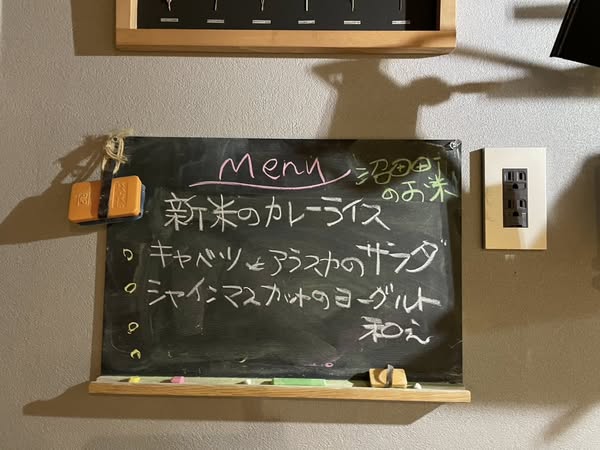 Menu
沼田町
のお米
新米のカレーライス
キャベツとアラスカのサラダ
シャインマスカットのヨーグルト
和え